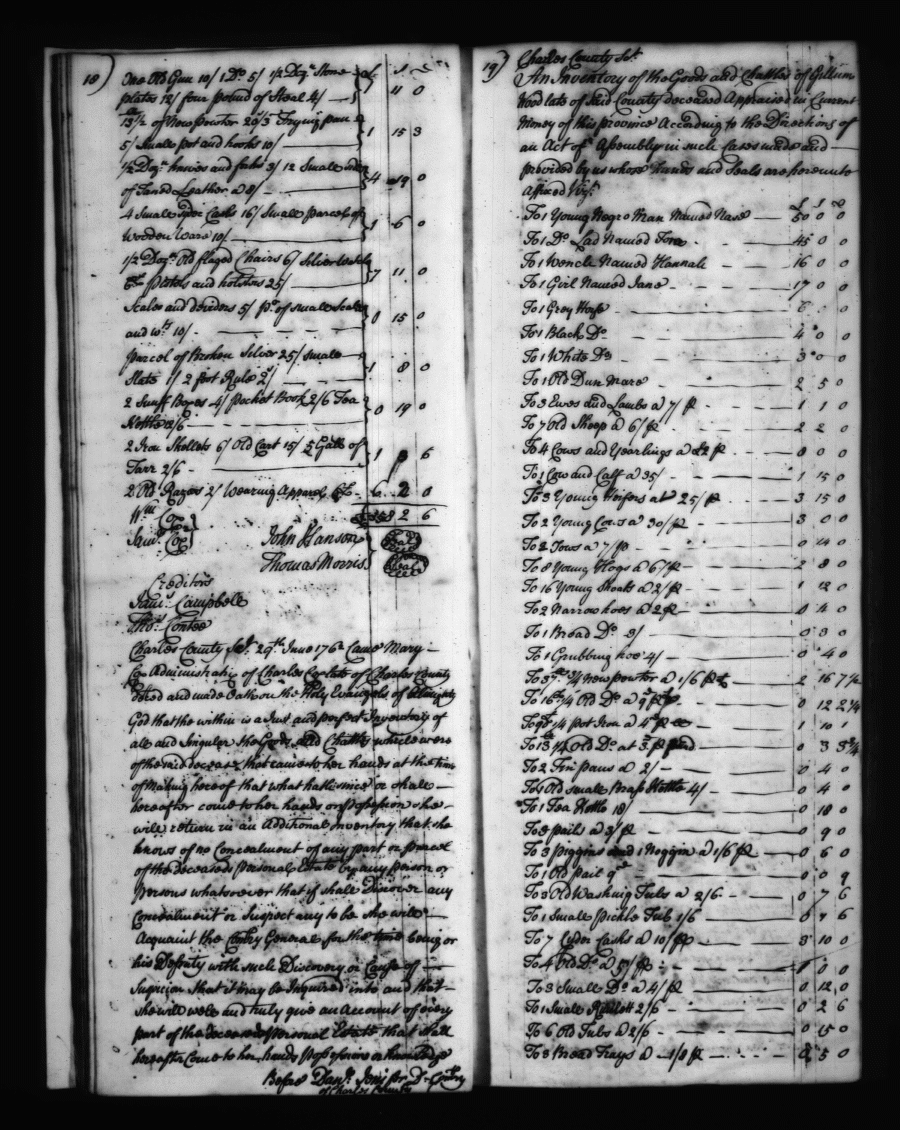 18)
One Old Gun 10/ 1 Do 5/ 1/2 Dozn Stone
plates 12/ four pound of Steal 4/ 1 11 0
13 1/2 of New pewter 20/3 Frying pan
5/ Small pot and hooks 10/ 1 15 3
1/2 Dozn knives and forks 3/ 12 Small sides
of Taned Leather a 8/ 4 19 0
4 Small Cyder Casks 16/ Small parcel of
Wooden Ware 10/ 1 6 0
1/2 Dozn Old flaged Chairs 6/ Silver Watch
£6 Pistols and holsters 25/ 7 11 0
Scales and dividers 5/ pr of small scales
and wts 10/ 0 15 0
parcel of Broken Silver 25/ small
Slate 1/ 2 foot Rule 2/ 1 8 0
2 Snuff Boxes 4/ pocket Book 2/6 Tea
Kettle 0 19 0
2 Iron Skellets 6/ Old Cart 15/ 5 Galls of
Tarr 2/6 1 6
2 Old Razors 2/ Wearing Apparel £6 6 2 0
2 6
Wm Cox
Saml Cox
John Hanson (Seal)
Thomas Morris (Seal)
Creditors
Saml Campbell
Thos Contee
Charles County Sct. 29th June 176 Came Mary
Cox Administratrix of Charles Cox late of Charles County
dece'd and made Oath on the Holy Evangels of Almighty
God that the within is a Just and perfect Inventory of
all and singular the Goods and Chattles which were
of the said deceased that came to her hands at the time
of making hereof that what hath since or shall
hereafter come to her hands or possession she
will return in an Additional Inventory that she
knows of no Concealment of any part or parcel
of the deceased's personal Estate by any person or
persons whatsoever that if shall Discover any
Concealment or Suspect any to be she will
Acquaint the Comry General for the time being or
his Deputy with such Discovery or Cause of
Suspicion that it may be Inquired into and that
she will well and truly give an Account of every
part of the deceased's personal Estate that shall
hereafter come to her hands possession or knowledge
Before Danl of St Thos Jenifer Dy Comry
of Charles County
19)
Charles County Sct.
An Inventory of the Goods and Chattles of Gillium
Wood late of said County deceased Appraised in Current
Money of this province According to the Directions of
an Act of Assembly in such Cases made and
provided by us whose hands and seals are hereunto
Affixed Vizt.
£ s d
To 1 Young Negro Man Named Nase 50 0 0
To 1 Do Lad Named Tom 45 0 0
To 1 Wench Named Hannah 16 0 0
To 1 Girl Named Jane 17 0 0
To 1 Grey Horse 6
To 1 Black Do 4 0 0
To 1 White Do 3 0 0
To 1 Old Dun Mare 2 5 0
To 3 Ewes and Lambs a 7/ p 1 1 0
To 7 Old Sheep a 6/ p 2 2 0
To 4 Cows and Yearlings a £2 p 8 0 0
To 1 Cow and Calf a 35/ 1 15 0
To 3 Young Heifers at 25/ p 3 15 0
To 2 Young Cows a 30/ p 3 0 0
To 2 Sows a 7/ p 0 14 0
To 8 Young Hogs a 6/ p 2 8 0
To 16 Young Shoats a 2/ p 1 12 0
To 2 Narrow hoes a 2 p 0 4 0
To 1 Broad Do 3/ 0 3 0
To 1 Grubbing hoe 4/ 0 4 0
To 37 3/4 New pewter a 1/6 p 2 16 7 1/2
To 16 1/4 Old Do a 9 p 0 12 2 1/4
To pot Iron a 4 p 1 10 1
To 13 1/4 Old Do at 3 p pound 0 3 3 3/4
To 2 Tin pans a 2/ 0 4 0
To 1 Old small brass Kettle 4/ 0 4 0
To 1 Tea Kettle 18/ 0 18 0
To 3 pails a 3/ p 0 9 0
To 3 piggins and 1 Noggin a 1/6 p 0 6 0
To 1 Old pail 9d 0 0 9
To 3 Old Washing Tubs a 2/6 0 7 6
To 1 Small Pickle Tub 1/6 0 1 6
To 7 Cyder Casks a 10/ p 3 10 0
To 4 Old Do a 5/ p 1 0 0
To 3 Small Do a 4/ p 0 12 0
To 1 Small Rundlett 2/6 0 2 6
To 6 Old Tubs a 2/6 0 15 0
To 3 Bread Trays a 1/8 p 0 5 0